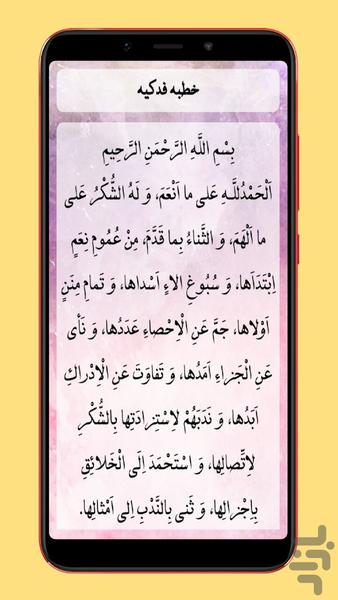 خطبه فدکیه
بِسْمِ اللَّهِ الرَّحْمَنِ الرَّحِيمِ
اَلْحَمْدُللَّـهِ عَلی ما اَنْعَمَ، وَ لَهُ الشُّكْرُ عَلی
ما اَلْهَمَ، وَ الثَّناءُ بِما قَدَّمَ، مِنْ عُمُومِ نِعَمٍ
اِبْتَدَأَها، وَ سُبُوغِ الاءٍ اَسْداها، وَ تَمامِ مِنَنٍ
اَوْلاها، جَمَّ عَنِ الْاِحْصاءِ عَدَدُها، وَ نَأی
عَنِ الْجَزاءِ اَمَدُها، وَ تَفاوَتَ عَنِ الْاِدْراكِ
اَبَدُها، وَ نَدَبَهُمْ لاِسْتِزادَتِها بِالشُّكْرِ
لاِتِّصالِها، وَ اسْتَحْمَدَ اِلَی الْخَلائِقِ
بِاِجْزالِها، وَ ثَنی بِالنَّدْبِ اِلی اَمْثالِها.
بازار